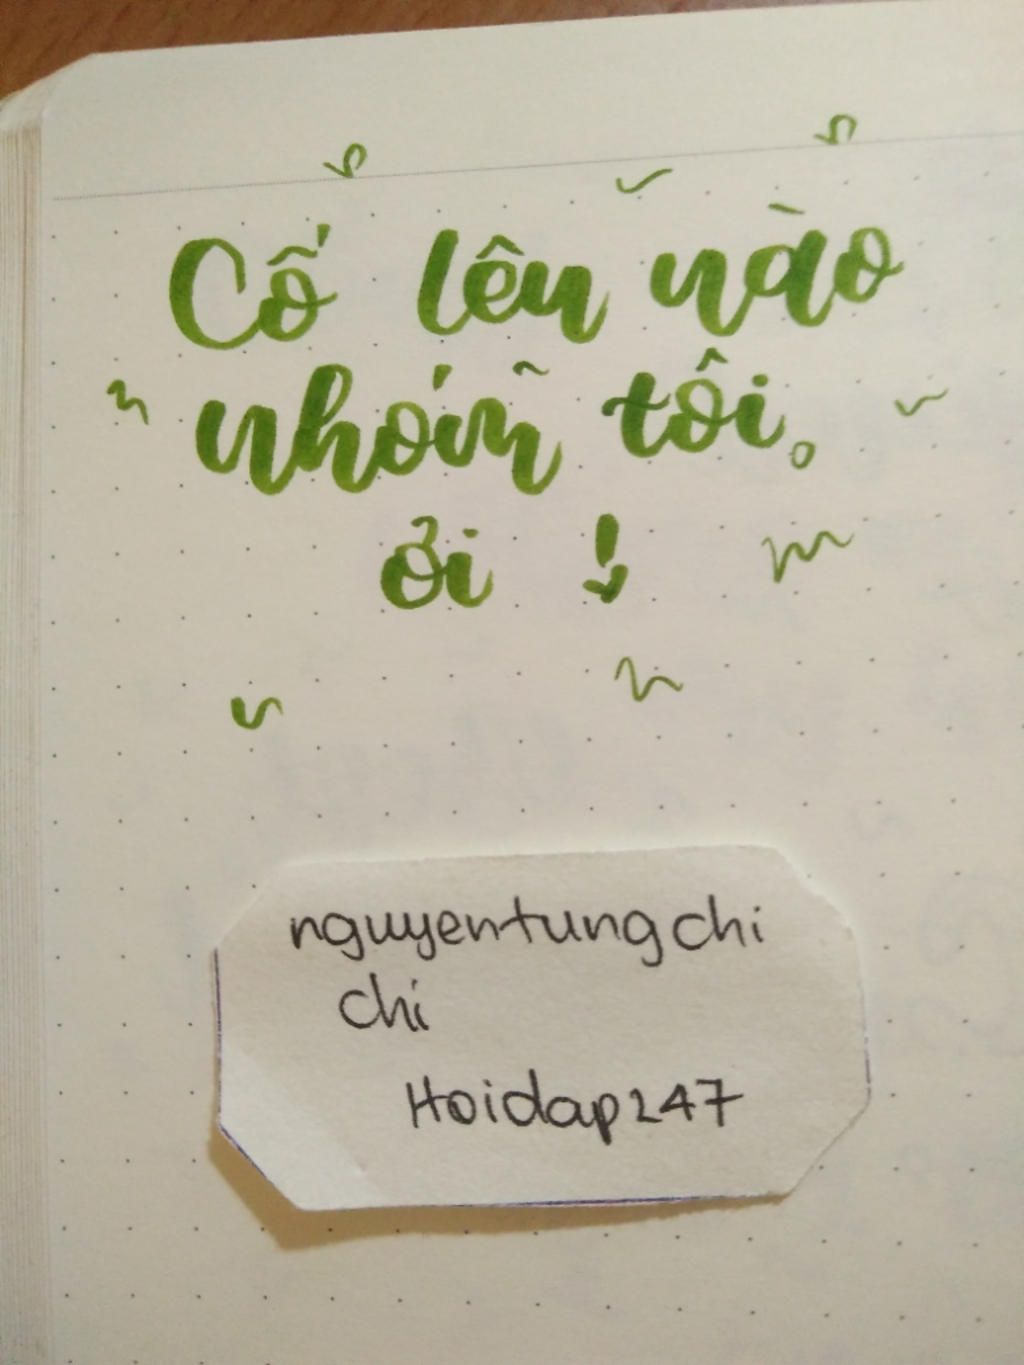 Cố lên nào
nhóm tôi
ởi !
nguyentungchi
chi
Hoidap247